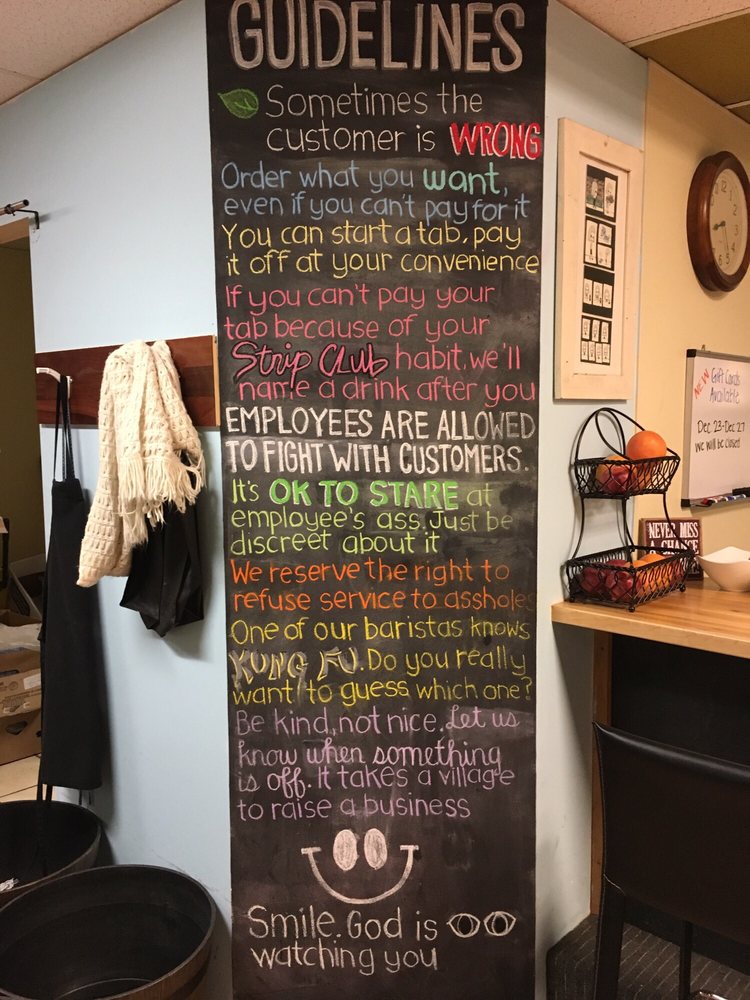 GUIDELINES
Sometimes the
customer is WRONG
Order what you want,
even if you can't pay for it
You can start a tab, pay
it off at your convenience
If you can't pay your
tab because of your
Strip Club habit, we'll
name a drink after you
EMPLOYEES ARE ALLOWED
TO FIGHT WITH CUSTOMERS.
It's OK TO STARE at
employee's ass. Just be
discreet about it
We reserve the right to
refuse service to assholes
One of our baristas knows
KUNG FU. Do you really
want to guess which one?
Be kind, not nice. Let us
know when something
is off. It takes a village
to raise a business
Smile. God is
watching you
NEW Gift Cards
Available
Dec 23-Dec 27
we will be closed
NEVER MISS
A CHANCE